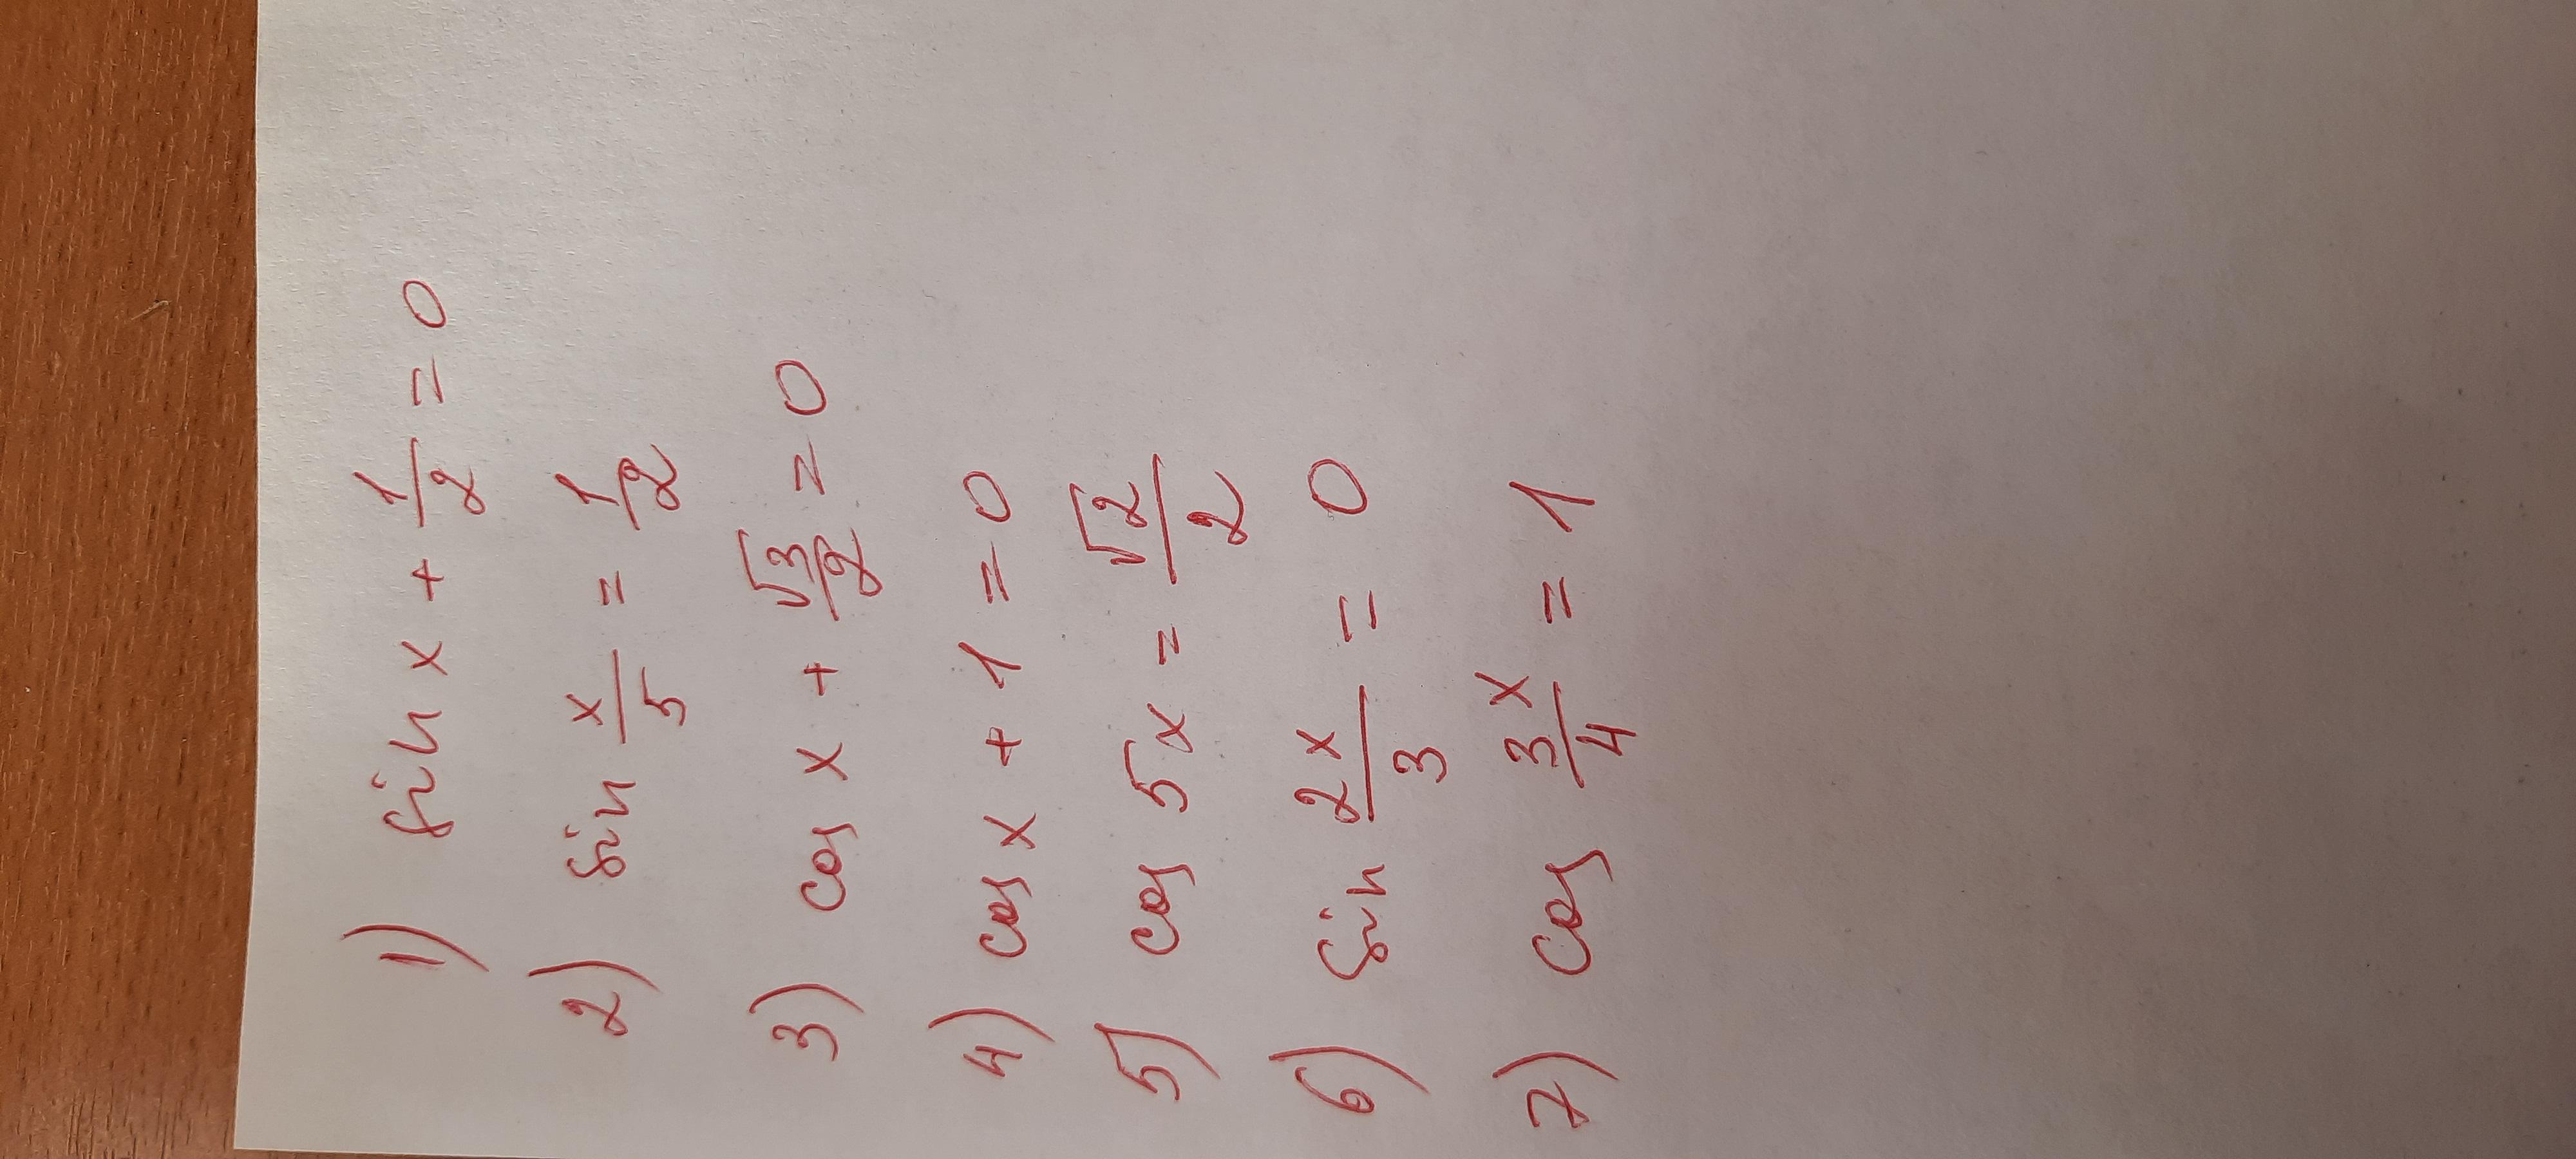 1) sin x + 1/2 = 0
2) sin x/5 = 1/2
3) cos x + √3/2 = 0
4) cos x + 1 = 0
5) cos 5x = √2/2
6) sin 2x/3 = 0
7) cos 3x/4 = 1